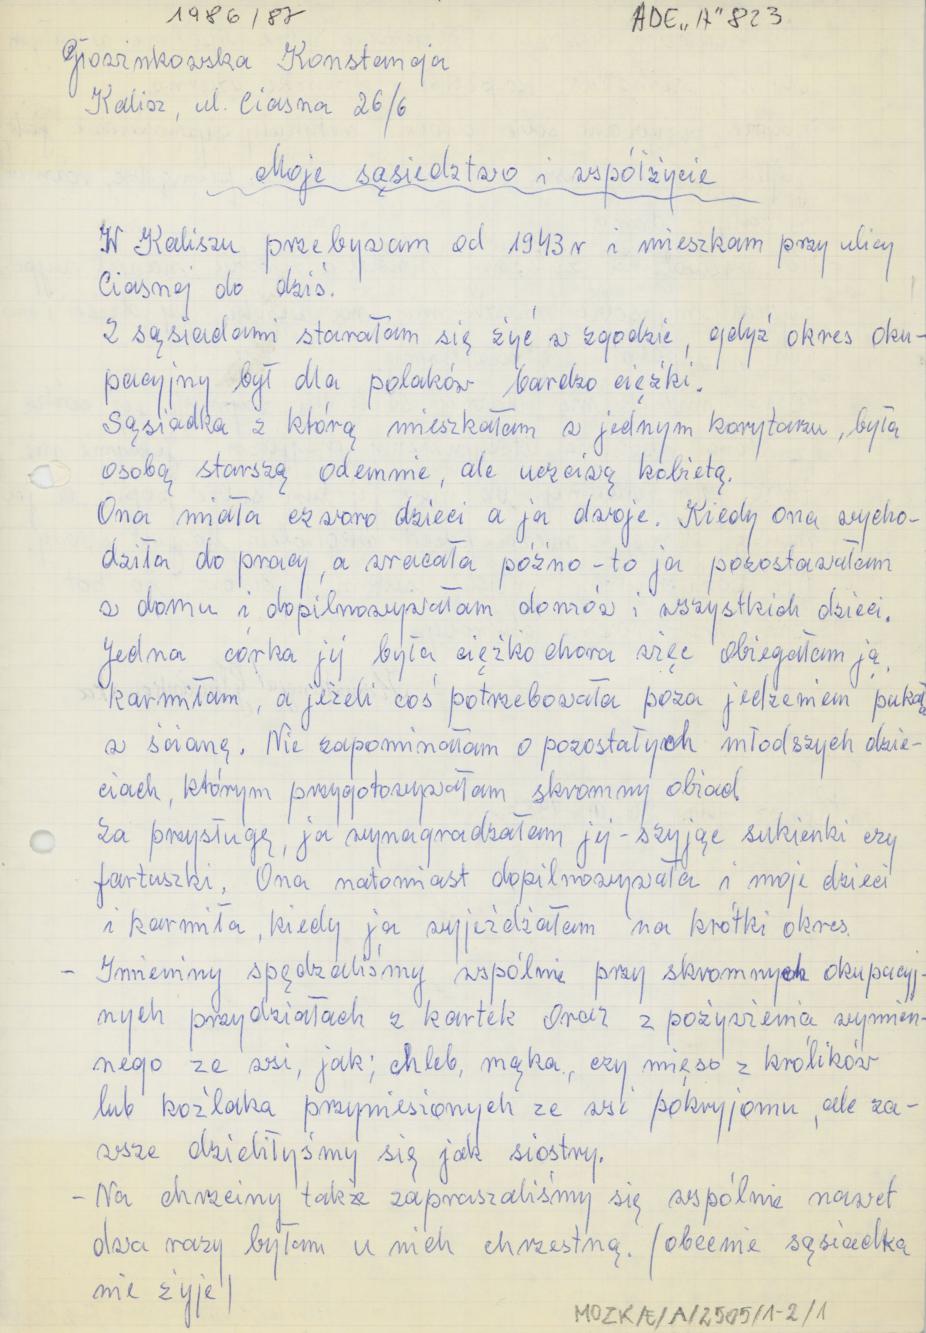 1986/87
ADE„A"823
Głozinkowska Konstancja
Kalisz, ul. Ciasna 26/6
Moje sąsiedztwo i współżycie
W Kaliszu przebywam od 1943 r i mieszkam przy ulicy
Ciasnej do dziś.
Z sąsiadami starałam się żyć w zgodzie, gdyż okres oku-
pacyjny był dla polaków bardzo ciężki.
Sąsiadka z którą mieszkałam w jednym korytarzu, była
osobą starszą odemnie, ale uczciwą kobietą.
Ona miała czworo dzieci a ja dwoje. Kiedy ona wycho-
dziła do pracy, a wracała pożno - to ja pozostawałam
w domu i dopilnowywałam domów i wszystkich dzieci.
Jedna córka jej była ciężko chora więc obiegałam ją,
karmiłam, a jeżeli coś potrzebowała poza jedzeniem pukała
w ścianę. Nie zapominałam o pozostałych młodszych dzie-
ciach, którym przygotowywałam skromny obiad.
Za przysługę, ja wynagradzałam jej - szyjąc sukienki czy
fartuszki. Ona natomiast dopilnowywała i moje dzieci
i karmiła, kiedy ja wyjeżdżałam na krótki okres.
- Imieniny spędzaliśmy wspólnie przy skromnych okupacyj-
nych przydziałach z kartek oraz z pożywienia wymien-
nego ze wsi, jak; chleb, mąka, czy mięso z królików
lub koźlaka przyniesionych ze wsi pokryjomu, ale za-
wsze dzieliłyśmy się jak siostry.
- Na chrzciny także zapraszaliśmy się wspólnie nawet
dwa razy byłam u nich chrzestną. (obecnie sąsiadka
nie żyje)
MOZK/E/A/2505/1-2/1